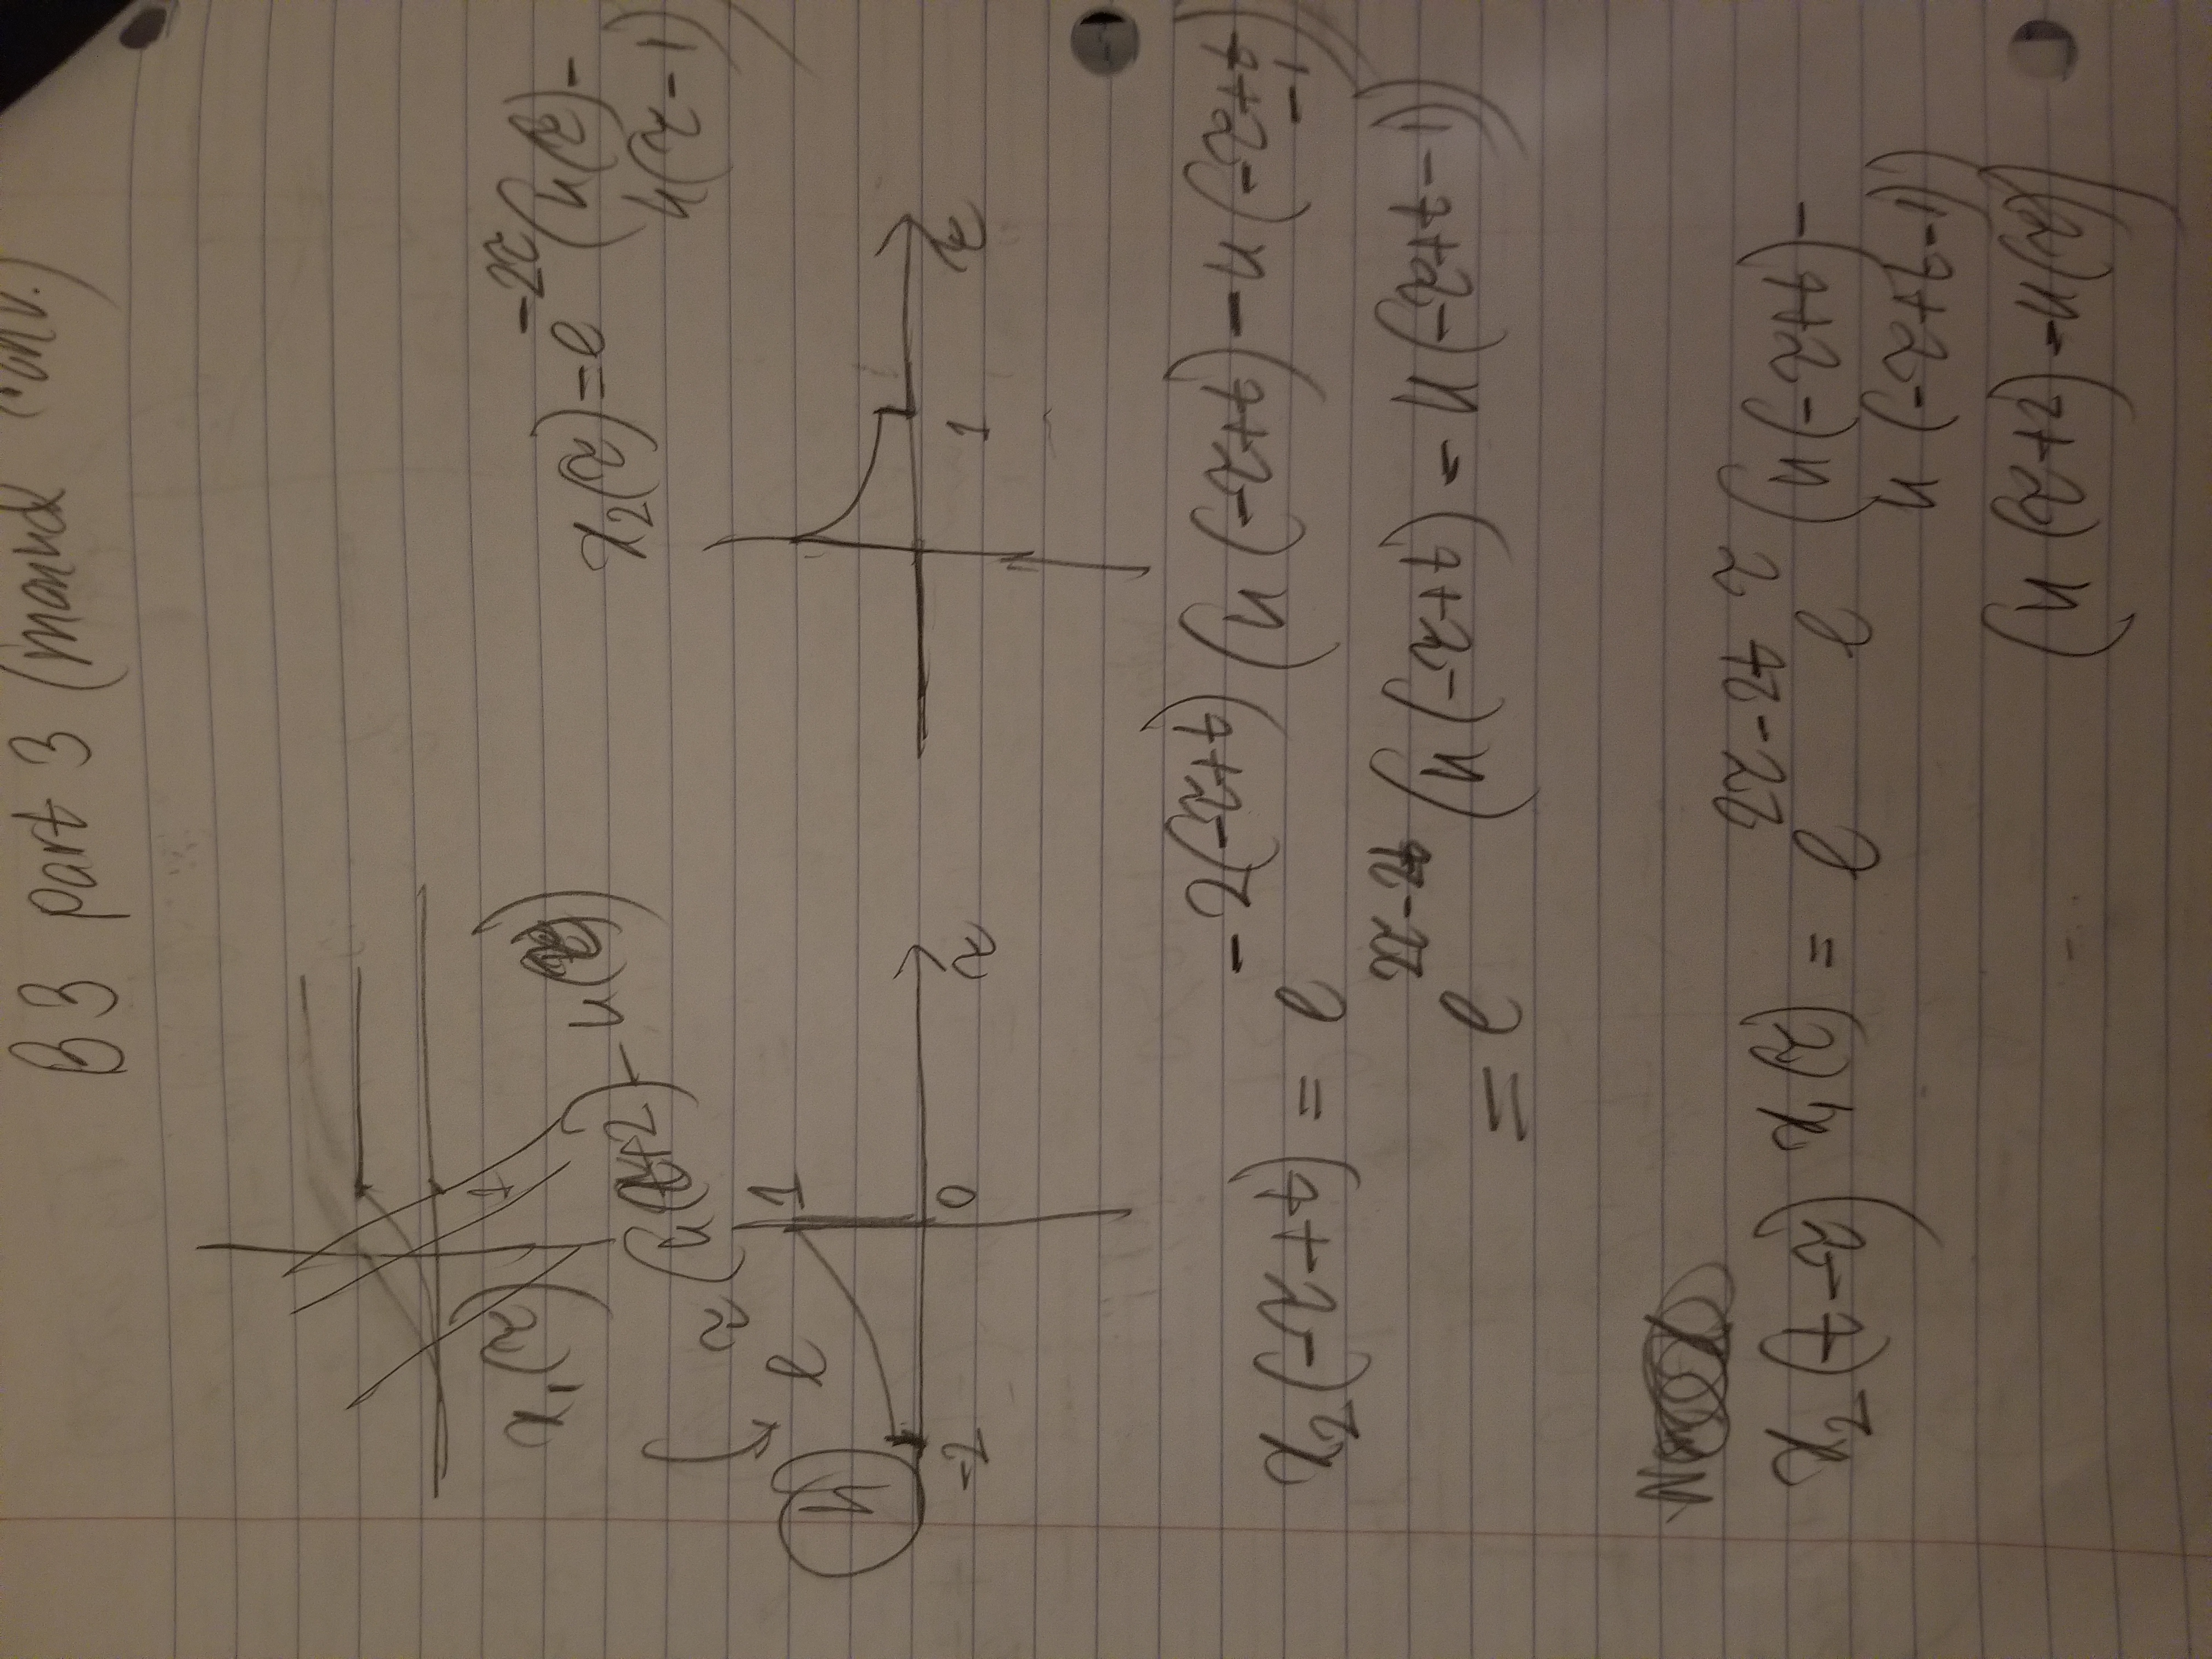 B3 part 3 (manual conv.)
1
x₁(τ)
e^τ (u(τ+2) - u(τ))
x₂(τ) = e^-2τ (u(τ) -
u(τ-1))
h
1
-2 0 τ
1 τ
x₂(-τ+t) = e^-2(-τ+t) (u(-τ+t) - u(-τ+t
-1))
= e^2τ-2t (u(-τ+t) - u(-τ+t-1))
x₂(t-τ) x₁(τ) = e^2τ-2t e^τ (u(-τ+t) -
u(-τ+t-1))
(u(τ+2) - u(τ))